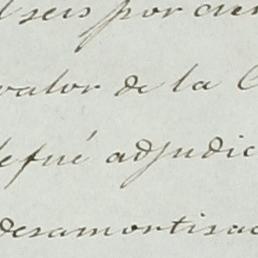 seis por cien
valor de la C
le fué adjudic
desamortisac